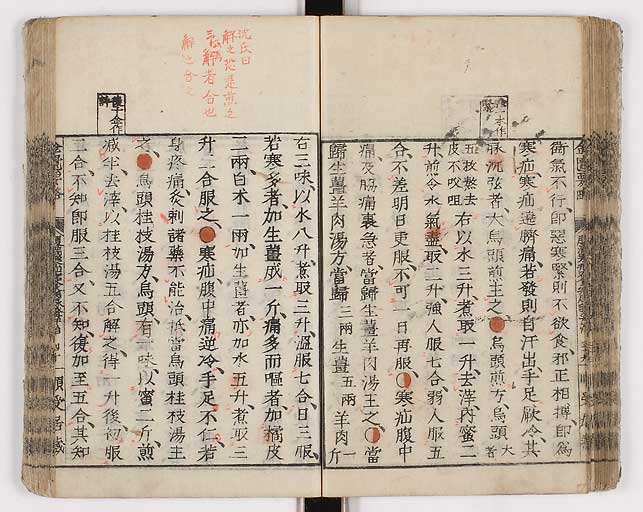 衛氣不行即惡寒緊則不欲食邪正相搏即為
寒疝寒疝遶臍痛若發則自汗出手足厥冷其
脉沉弦者大烏頭煎主之烏頭煎方烏頭大者
五枚熬去皮不㕮咀右以水三升煮取一升去滓内蜜二
升煎令水氣盡取二升強人服七合弱人服五
合不差明日更服不可一日再服寒疝腹中
痛及脇痛裏急者當歸生薑羊肉湯主之當
歸生薑羊肉湯方當歸三兩生薑五兩羊肉一斤
右三味以水八升煮取三升温服七合日三服
若寒多者加生薑成一斤痛多而嘔者加橘皮
二兩白朮一兩加生薑者亦加水五升煮取三
升二合服之寒疝腹中痛逆冷手足不仁若
身疼痛灸刺諸藥不能治抵當烏頭桂枝湯主
之烏頭桂枝湯方烏頭右一味以蜜二斤煎
減半去滓以桂枝湯五合解之得一升後初服
二合不知即服三合又不知復加至五合其知
沈氏曰
解之恐是煎之
解者合也